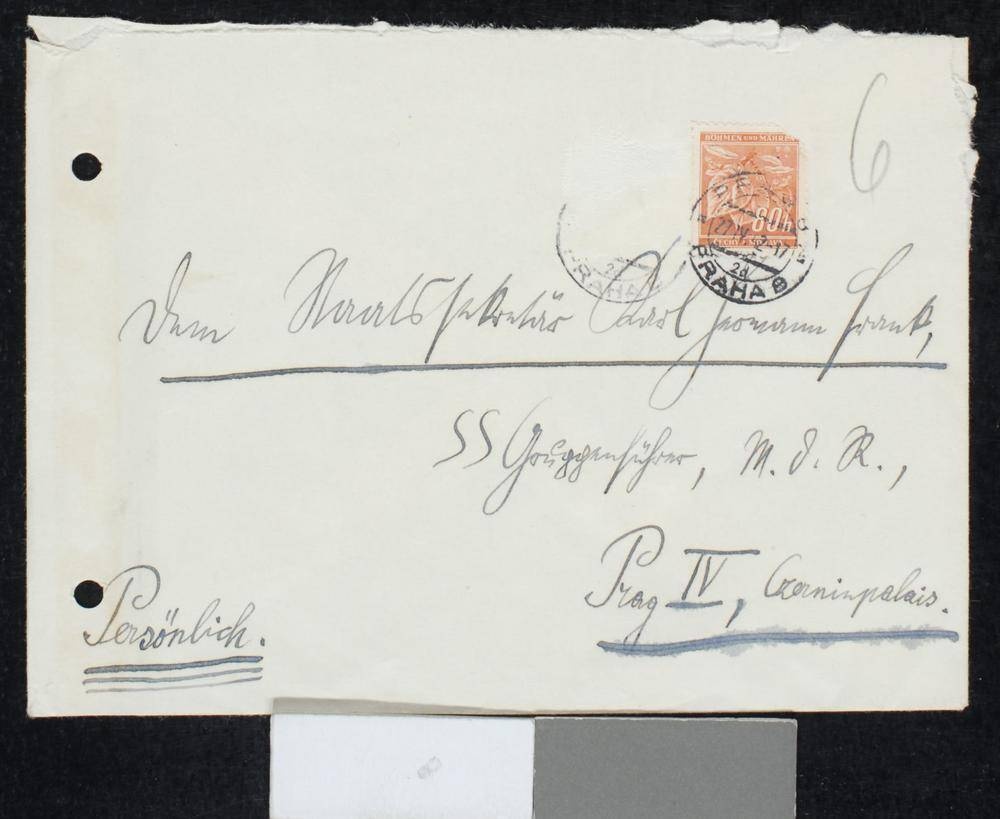 6
BÖHMEN UND MÄHREN
80h
ČECHY A MORAVA
27 IV 42-17
2d
PRAHA 8
PRAHA
Dem Staatssekretär Karl Hermann Frank,
SS Gruppenführer, M. d. R.,
Prag IV, Czerninpalais.
Persönlich.